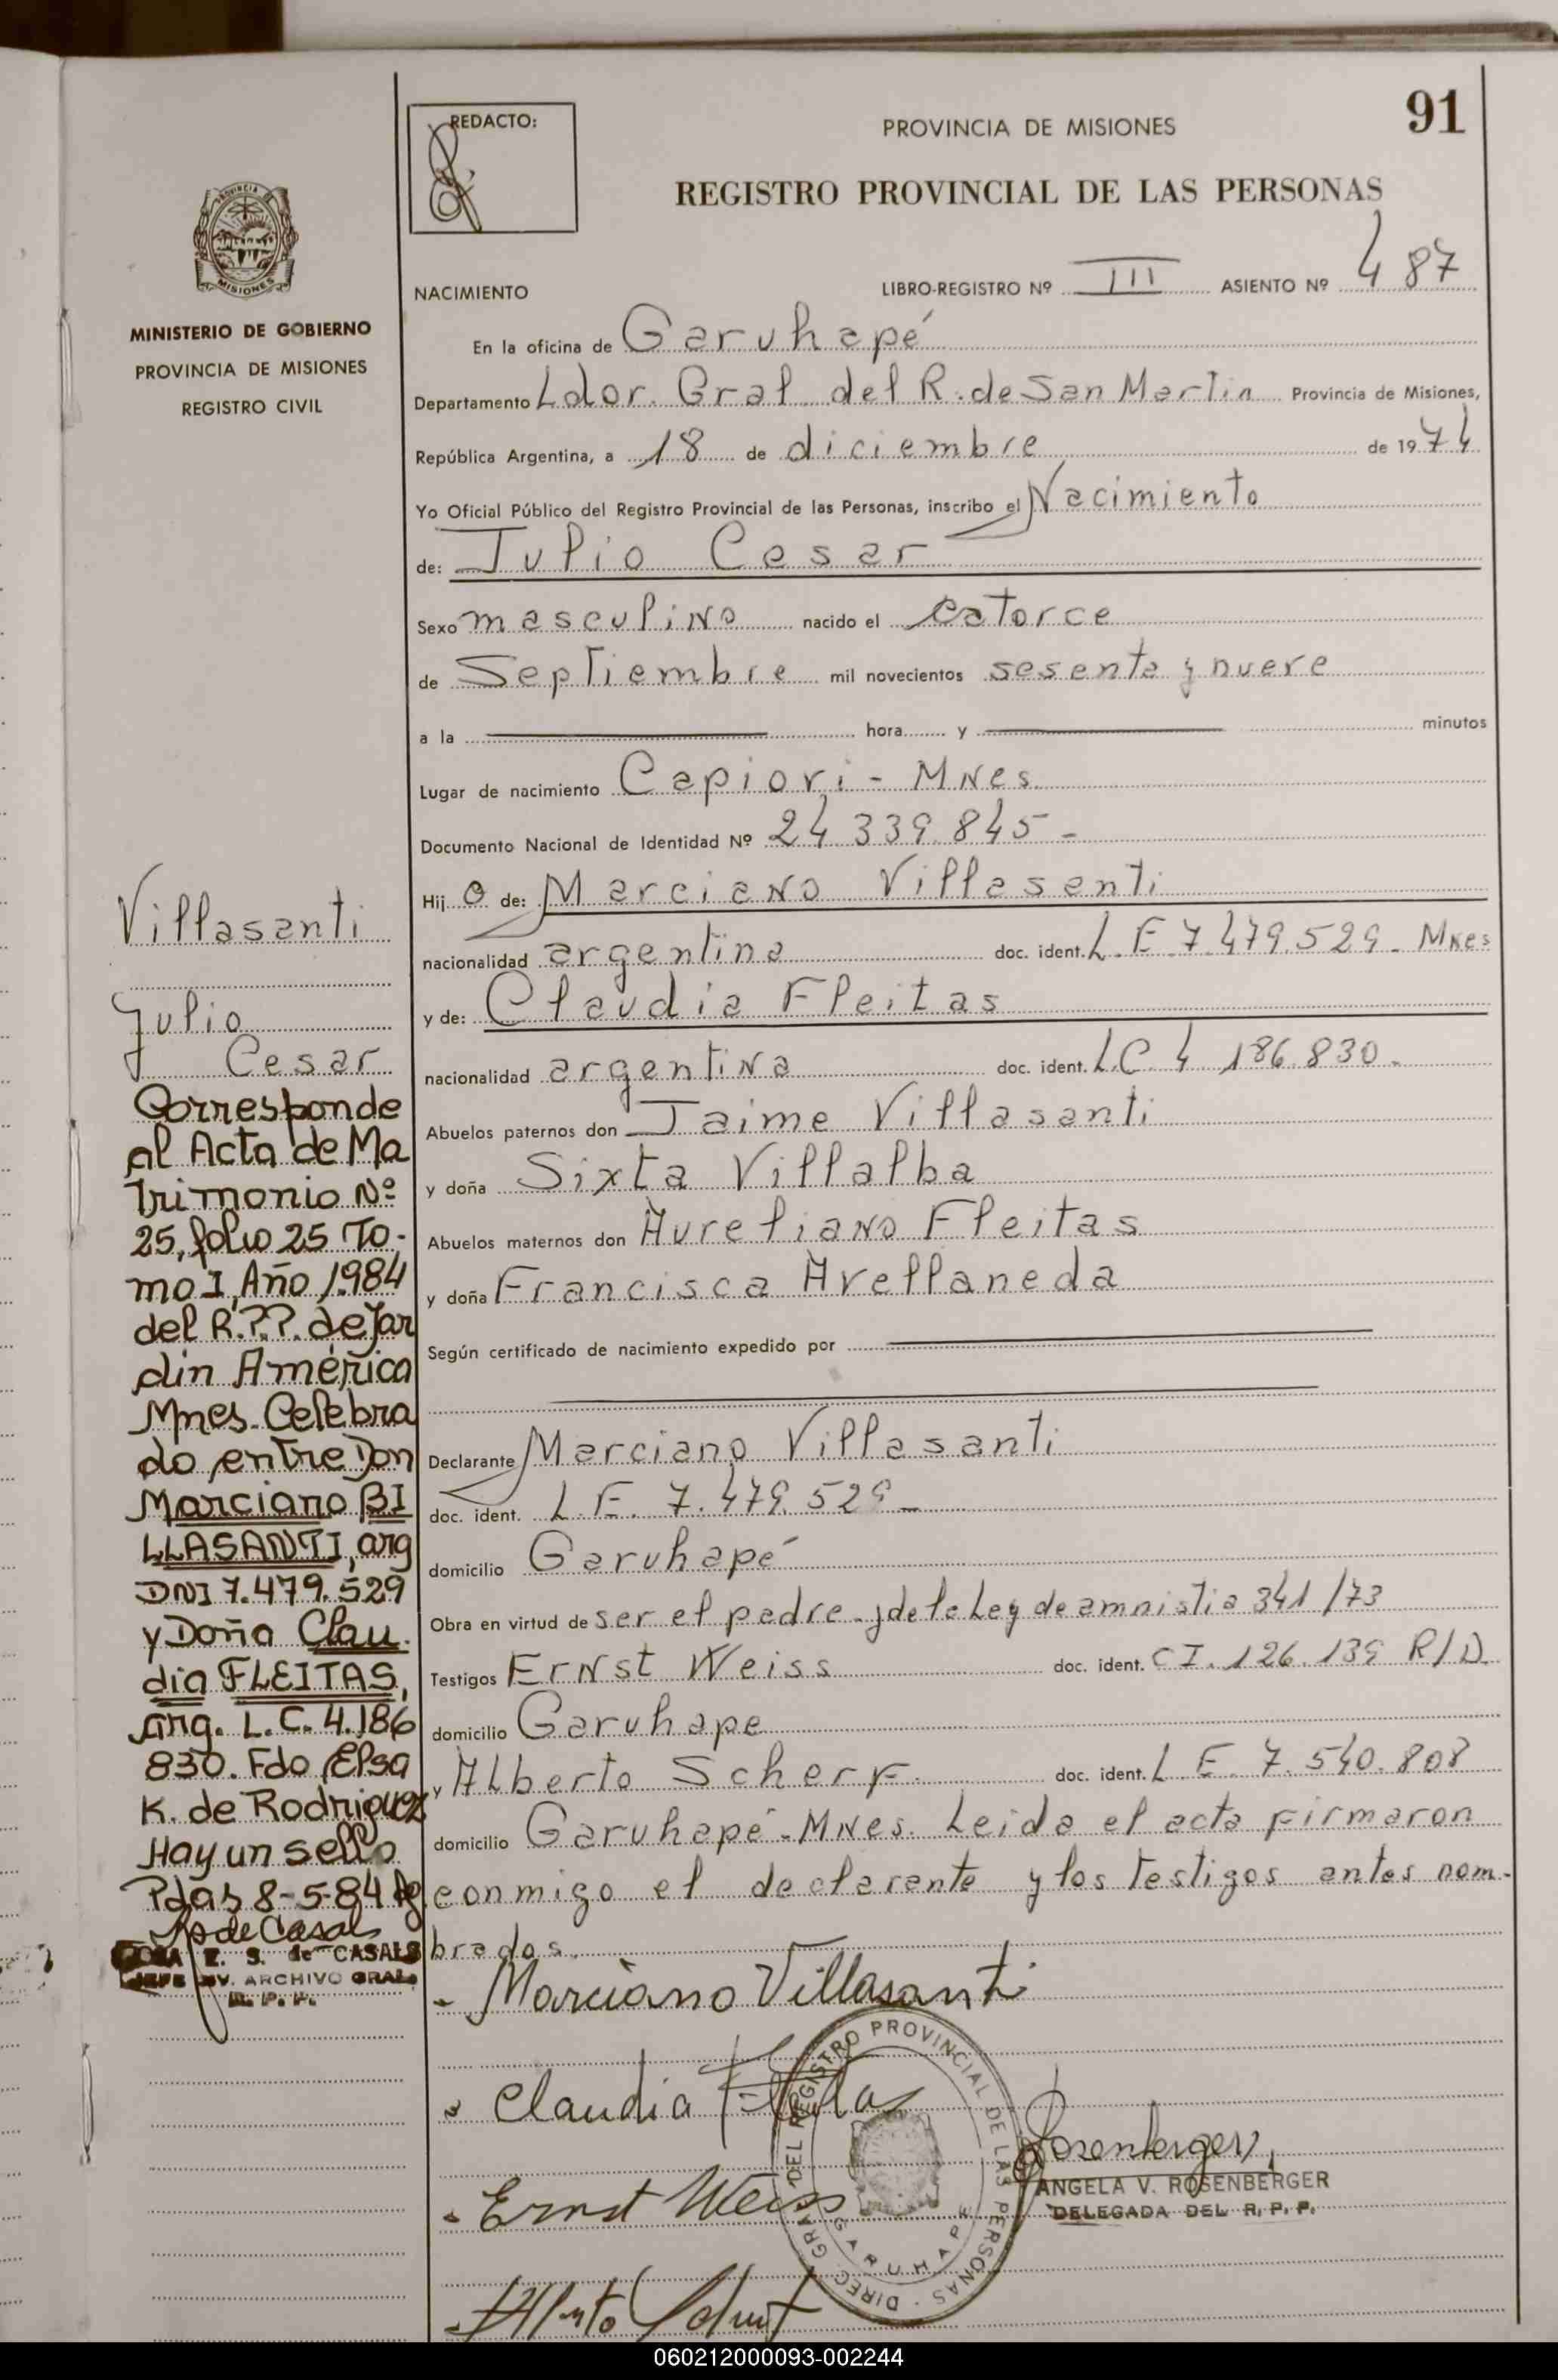 91
REDACTO:
PROVINCIA DE MISIONES
REGISTRO PROVINCIAL DE LAS PERSONAS
PROVINCIA
MISIONES
MINISTERIO DE GOBIERNO
PROVINCIA DE MISIONES
REGISTRO CIVIL
NACIMIENTO LIBRO-REGISTRO Nº III ASIENTO Nº 487
En la oficina de Garuhapé
Departamento Ldor. Gral del R. de San Martin Provincia de Misiones,
República Argentina, a 18 de diciembre de 1974
Yo Oficial Público del Registro Provincial de las Personas, inscribo el Nacimiento
de: Julio Cesar
Sexo masculino nacido el catorce
de Septiembre mil novecientos sesenta y nueve
a la hora y minutos
Lugar de nacimiento Capiovi - Mnes.
Documento Nacional de Identidad Nº 24 339.845 -
Hij o de: Marciano Villasanti
nacionalidad argentina doc. ident. L.E 7.479.529 - Mnes
y de: Claudia Fleitas
nacionalidad argentina doc. ident. L.C. 4 186.830 -
Abuelos paternos don Jaime Villasanti
y doña Sixta Villalba
Abuelos maternos don Aureliano Fleitas
y doña Francisca Avellaneda
Según certificado de nacimiento expedido por
Declarante Marciano Villasanti
doc. ident. L.E. 7.479.529 -
domicilio Garuhapé
Obra en virtud de ser el padre - y de la Ley de amnistia 341/73
Testigos Ernst Weiss doc. ident. C I. 126.139 R/D.
domicilio Garuhape
y Alberto Scherf doc. ident. L.E. 7.540.808
domicilio Garuhapé - Mnes. Leida el acta firmaron
conmigo el declarante y los testigos antes nom-
brados.
Villasanti
Julio
Cesar
Corresponde
al Acta de Ma
trimonio Nº
25, folio 25 To-
mo I, Año 1984
del R.P.P. de Jar
din América
Mnes. Celebra
do entre Don
Marciano BI
LLASANTI, arg
DNI 7.479.529
y Doña Clau-
dia FLEITAS,
arg. L.C. 4.186
830. Fdo Elsa
K. de Rodriguez
Hay un sello
Pdas 8-5-84
de Casals
E. S. de CASALS
JEFE DIV. ARCHIVO GRAL.
R. P. P.
- Marciano Villasanti
- Claudia Fleitas
- Ernst Weiss
Rosenberger
ANGELA V. ROSENBERGER
DELEGADA DEL R. P. P.
DIREC. GRAL. DEL REGISTRO PROVINCIAL DE LAS PERSONAS
GARUHAPE
060212000093-002244